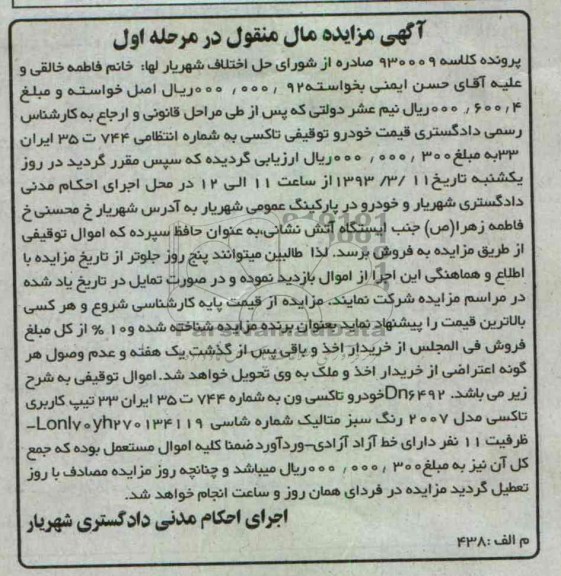 آگهی مزایده مال منقول در مرحله اول
پرونده کلاسه ۹۳۰۰۰۹ صادره از شورای حل اختلاف شهریار لها: خانم فاطمه خالقی و
علیه آقای حسن ایمنی بخواسته۹۲ ,۰۰۰, ۰۰۰ریال اصل خواسته و مبلغ
۴ ,۶۰۰, ۰۰۰ریال نیم عشر دولتی که پس از طی مراحل قانونی و ارجاع به کارشناس
رسمی دادگستری قیمت خودرو توقیفی تاکسی به شماره انتظامی ۷۴۴ ت ۳۵ ایران
۳۳به مبلغ۳۰۰ ,۰۰۰, ۰۰۰ریال ارزیابی گردیده که سپس مقرر گردید در روز
یکشنبه تاریخ۱۱ /۳/ ۱۳۹۳از ساعت ۱۱ الی ۱۲ در محل اجرای احکام مدنی
دادگستری شهریار و خودرو در پارکینگ عمومی شهریار به آدرس شهریار خ محسنی خ
فاطمه زهرا(ص) جنب ایستگاه آتش نشانی،به عنوان حافظ سپرده که اموال توقیفی
از طریق مزایده به فروش برسد. لذا طالبین میتوانند پنج روز جلوتر از تاریخ مزایده با
اطلاع و هماهنگی این اجرا از اموال بازدید نموده و در صورت تمایل در تاریخ یاد شده
در مراسم مزایده شرکت نمایند. مزایده از قیمت پایه کارشناسی شروع و هر کسی
بالاترین قیمت را پیشنهاد نماید بعنوان برنده مزایده شناخته شده و۱۰ % از کل مبلغ
فروش فی المجلس از خریدار اخذ و باقی پس از گذشت یک هفته و عدم وصول هر
گونه اعتراضی از خریدار اخذ و ملک به وی تحویل خواهد شد. اموال توقیفی به شرح
زیر می باشد. Dn۶۴۹۲خودرو تاکسی ون به شماره ۷۴۴ ت ۳۵ ایران ۳۳ تیپ کاربری
تاکسی مدل ۲۰۰۷ رنگ سبز متالیک شماره شاسی Lonl۷۰yh۲۷۰۱۳۴۱۱۹-
ظرفیت ۱۱ نفر دارای خط آزاد آزادی-وردآورد ضمنا کلیه اموال مستعمل بوده که جمع
کل آن نیز به مبلغ۳۰۰ ,۰۰۰, ۰۰۰ریال میباشد و چنانچه روز مزایده مصادف با روز
تعطیل گردید مزایده در فردای همان روز و ساعت انجام خواهد شد.
اجرای احکام مدنی دادگستری شهریار
م الف :۴۳۸